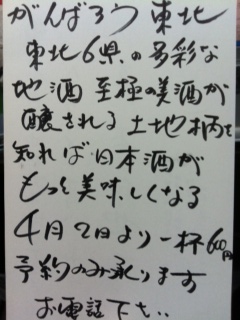 がんばろう東北
東北6県の多彩な
地酒 至極の美酒が
醸される 土地柄を
知れば日本酒が
もっと美味しくなる
4月2日より一杯600円
予約のみ承ります
お電話下さい